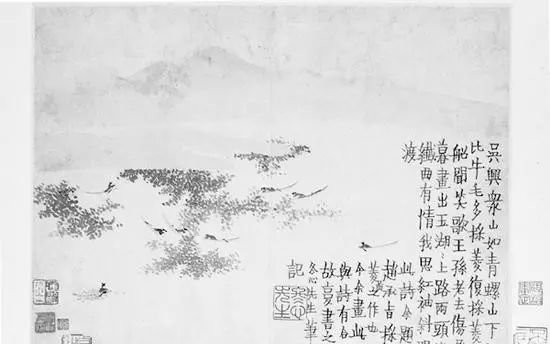 吳興衆山如青螺山下
比牛毛多採菱復採菱
船聞笑歌王孫老去傷
暮畫出玉湖〻上路兩頭
纖曲有情我思紅袖斜
渡
此詩余題
趙承旨採
菱之作也
今余畫此
與詩有合
故更書之
冬心先生筆
記